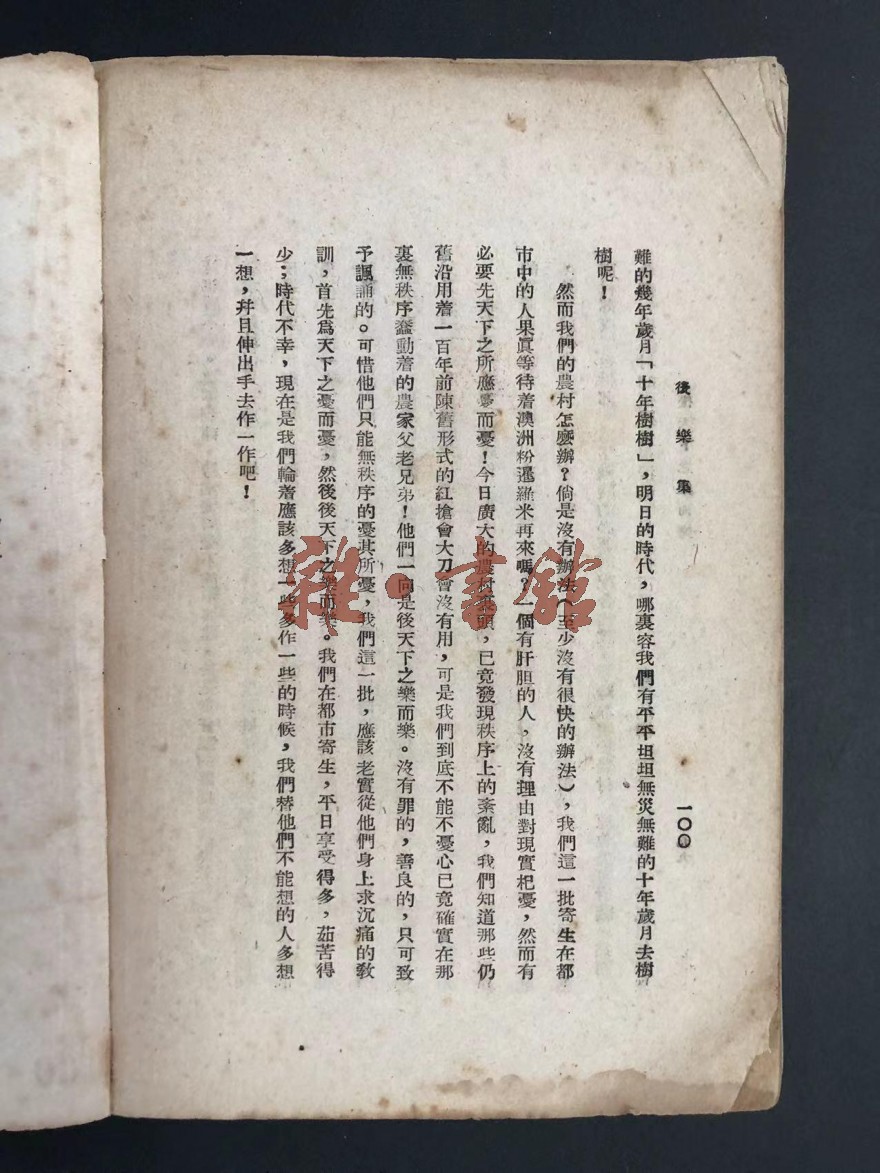 後樂集
一〇〇
難的幾年歲月「十年樹樹」，明日的時代，哪裏容我們有平平坦坦無災無難的十年歲月去樹
樹呢！
然而我們的農村怎麼辦？倘是沒有辦法（至少沒有很快的辦法），我們這一批寄生在都
市中的人果眞等待着澳洲粉暹羅米再來嗎？一個有肝胆的人，沒有理由對現實杞憂，然而有
必要先天下之所應憂而憂！今日廣大的農村裏頭，已竟發現秩序上的紊亂，我們知道那些仍
舊沿用着一百年前陳舊形式的紅搶會大刀會沒有用，可是我們到底不能不憂心已竟確實在那
裏無秩序蠢動着的農家父老兄弟！他們一向是後天下之樂而樂。沒有罪的，善良的，只可致
予諷誦的。可惜他們只能無秩序的憂其所憂，我們這一批，應該老實從他們身上求沉痛的敎
訓，首先爲天下之憂而憂，然後後天下之樂而樂。我們在都市寄生，平日享受得多，茹苦得
少；時代不幸，現在是我們輪着應該多想一些多作一些的時候，我們替他們不能想的人多想
一想，幷且伸出手去作一作吧！
雜·書館